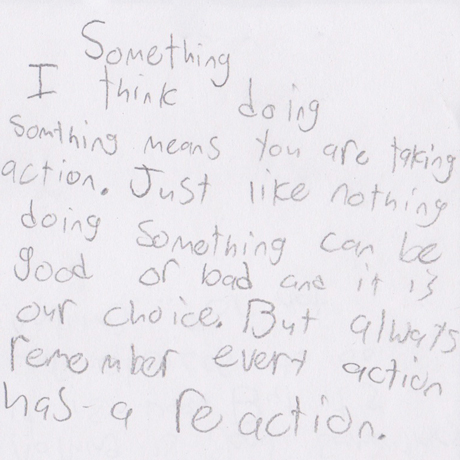 Something
I think doing
Somthing means you are taking
action. Just like nothing
doing something can be
good or bad and it is
our choice. But always
remember every action
has a reaction.